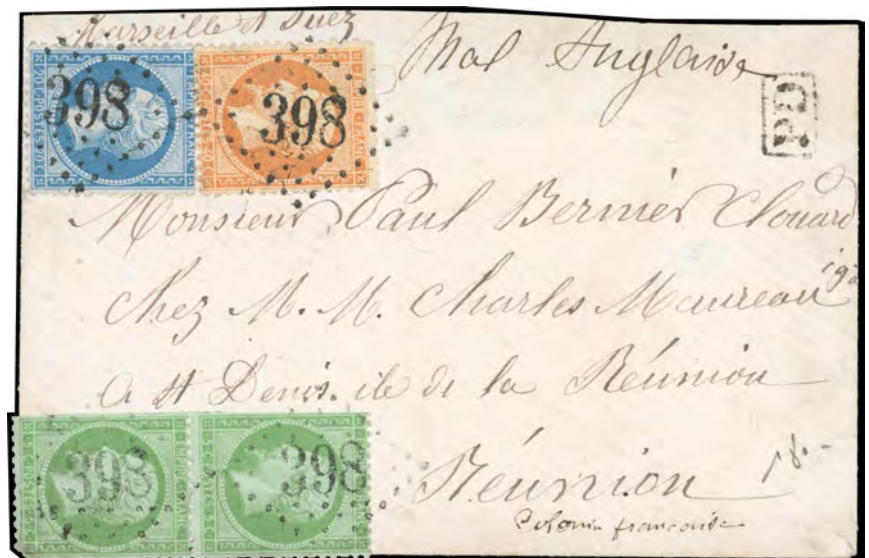 Marseille et Suez
Mal Anglaise
PD
398
398
Monsieur Paul Bernier Clouard
chez M. M. Charles Maureau
a St Denis. ile de la Réunion
Réunion
Colonie francaise
18.-
398
398